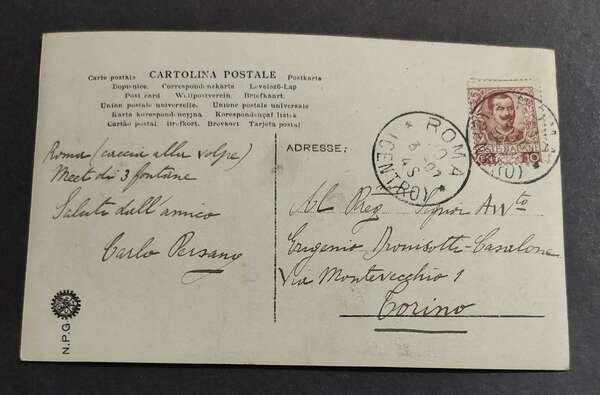 Carte postale CARTOLINA POSTALE Postkarta
Dopisnice. Correspondenzkarte Levelező-Lap
Post card Weltpostverein. Briefkaart.
Union postale universelle. Unione postale universale
Karta korrespondencyjna Korespondenční lístek
Cartão postal. Brefkort. Brevkort Tarjeta postal
Roma (caccia alla volpe)
Meet di 3 fontane
Saluti dall'amico
Carlo Persano
N.P.G
ADRESSE:
ROMA
(CENTRO)
10
Al Reg Signor Avv.to
Eugenio Casalone
Via Montevecchio 1
Torino